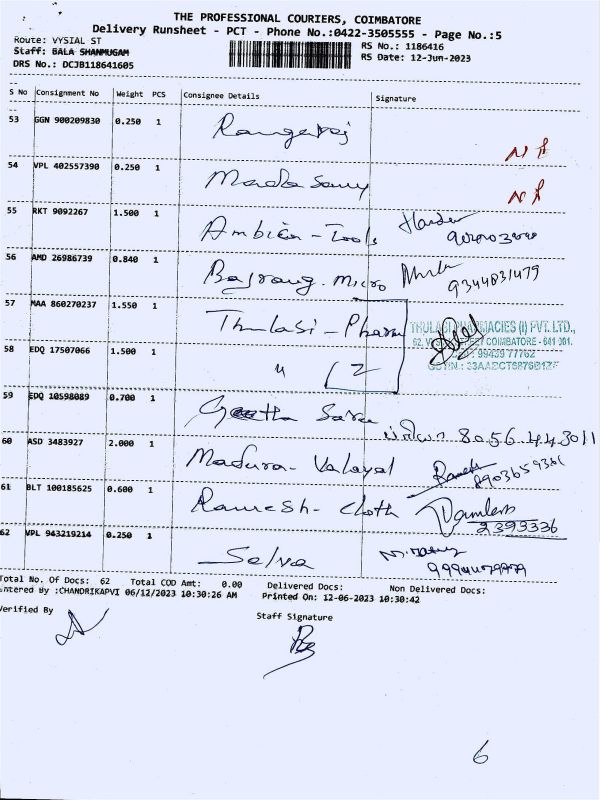 THE PROFESSIONAL COURIERS, COIMBATORE
Delivery Runsheet - PCT - Phone No.:0422-3505555 - Page No.:5
Route: VYSIAL ST
RS No.: 1186416
Staff: BALA SHANMUGAM
RS Date: 12-Jun-2023
DRS No.: DCJB118641605
S No Consignment No Weight PCS Consignee Details Signature
53 GGN 900209830 0.250 1 Rangaraj
N R
54 VPL 402557390 0.250 1 Mada Samy
N R
55 RKT 9092267 1.500 1 Ambica - Tools
56 AMD 26986739 0.840 1 Bajrang. Micro
9344831479
57 MAA 860270237 1.550 1 Thulasi - Pharm
THULASI PHARMACIES (I) PVT. LTD.,
COIMBATORE - 641 001.
99439 77762
58 EDQ 17507066 1.500 1 " 2
GSTIN.: 33AAECT6876B1ZF
59 EDQ 10598089 0.700 1 Geetha Saree
8056443011
60 ASD 3483927 2.000 1 Madura - Valayal
8903659361
61 BLT 100185625 0.600 1 Ramesh - Cloth
2393336
62 VPL 943219214 0.250 1 Selva
Total No. Of Docs: 62 Total COD Amt: 0.00 Delivered Docs: Non Delivered Docs:
Entered By :CHANDRIKAPVI 06/12/2023 10:30:26 AM Printed On: 12-06-2023 10:30:42
Verified By
Staff Signature
6